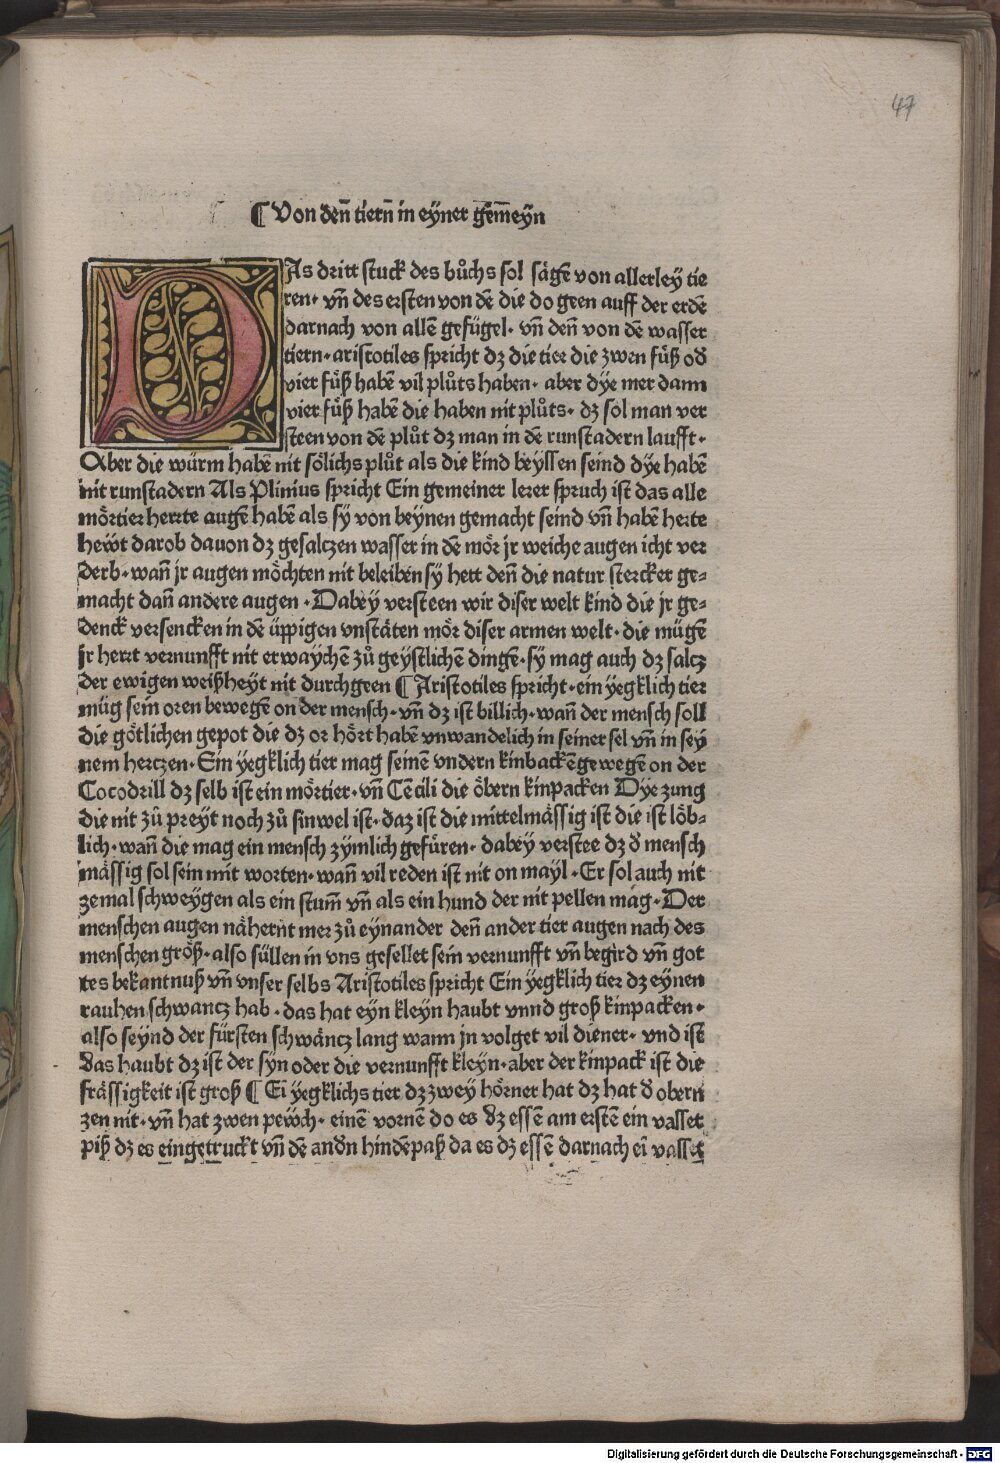 47
¶ Von deñ tierñ in eyner gem̃eyn
DAs dritt stuck des bůchs sol sägē von allerleÿ tie
ren· vñ des ersten von dē die do geen auff der erdē
darnach von allē gefügel· vñ deñ von dē wasser
tiern· aristotiles spricht dz die tier die zwen fůß oď
vier fůß habē vil plůts haben· aber dÿe mer dann
vier fůß habē die haben nit plůts· dz sol man ver
steen von dē plůt dz man in dē runstadern laufft·
Aber die würm habē nit sölichs plůt als die kind beÿssen seind dÿe habē
nit runstadern Als Plinius spricht Ein gemeiner lerer spruch ist das alle
mörtier herrte augē habē als sÿ von beÿnen gemacht seind vñ habē herte
heẅt darob dauon dz gesalczen wasser in dē mör jr weiche augen icht ver
derb· wañ jr augen möchten nit beleiben sÿ hett deñ die natur stercker ge⸗
macht dañ andere augen · Dabeÿ versteen wir diser welt kind die jr ge⸗
denck versencken in dē üppigen vnstäten mör diser armen welt· die mügē
jr herrt vernunfft nit erwaÿchē zů geÿstlichē dingē· sÿ mag auch dz salcz
der ewigen weißheÿt nit durchgeen ¶ Aristotiles spricht· ein ÿegklich tier
müg sein oren bewegē on der mensch· vñ dz ist billich· wañ der mensch soll
die götlichen gepot die dz or hört habē vnwandelich in seiner sel vñ in seÿ
nem herczen· Ein ÿegklich tier mag seinē vndern kinbackē gewegē on der
Cocodrill dz selb ist ein mörtier· vñ Tēcili die öbern kinpacken Dÿe zung
die nit zů preÿt noch zů sinwel ist· daz ist die mittelmässig ist die ist löb⸗
lich· wañ die mag ein mensch zÿmlich gefüren· dabeÿ verstee dz ď mensch
mässig sol sein mit worten· wañ vil reden ist nit on mayl· Er sol auch nit
zemal schweÿgen als ein stum̃ vñ als ein hund der nit pellen mag· Der
menschen augen nähernt mer zů eÿnander deñ ander tier augen nach des
menschen größ· also süllen in vns gesellet sein vernunfft vñ begird vñ got
tes bekantnuß vñ vnser selbs Aristotiles spricht Ein ÿegklich tier dz eÿnen
rauhen schwancz hab · das hat eÿn kleÿn haubt vnnd groß kinpacken·
also seÿnd der fürsten schwäncz lang wann jn volget vil diener· vnd ist
das haubt dz ist der sÿn oder die vernunfft kleÿn· aber der kinpack ist die
frässigkeit ist groß ¶ Ei ÿegklichs tier dz zweÿ hörner hat dz hat ď obern
zen nit· vñ hat zwen peẅch· einen vornē do es dz essē am erstē ein vasset
piß dz es eingetruckt vñ dē andn hindē paß da es dz essē darnach ei vasset
Digitalisierung gefördert durch die Deutsche Forschungsgemeinschaft - DFG